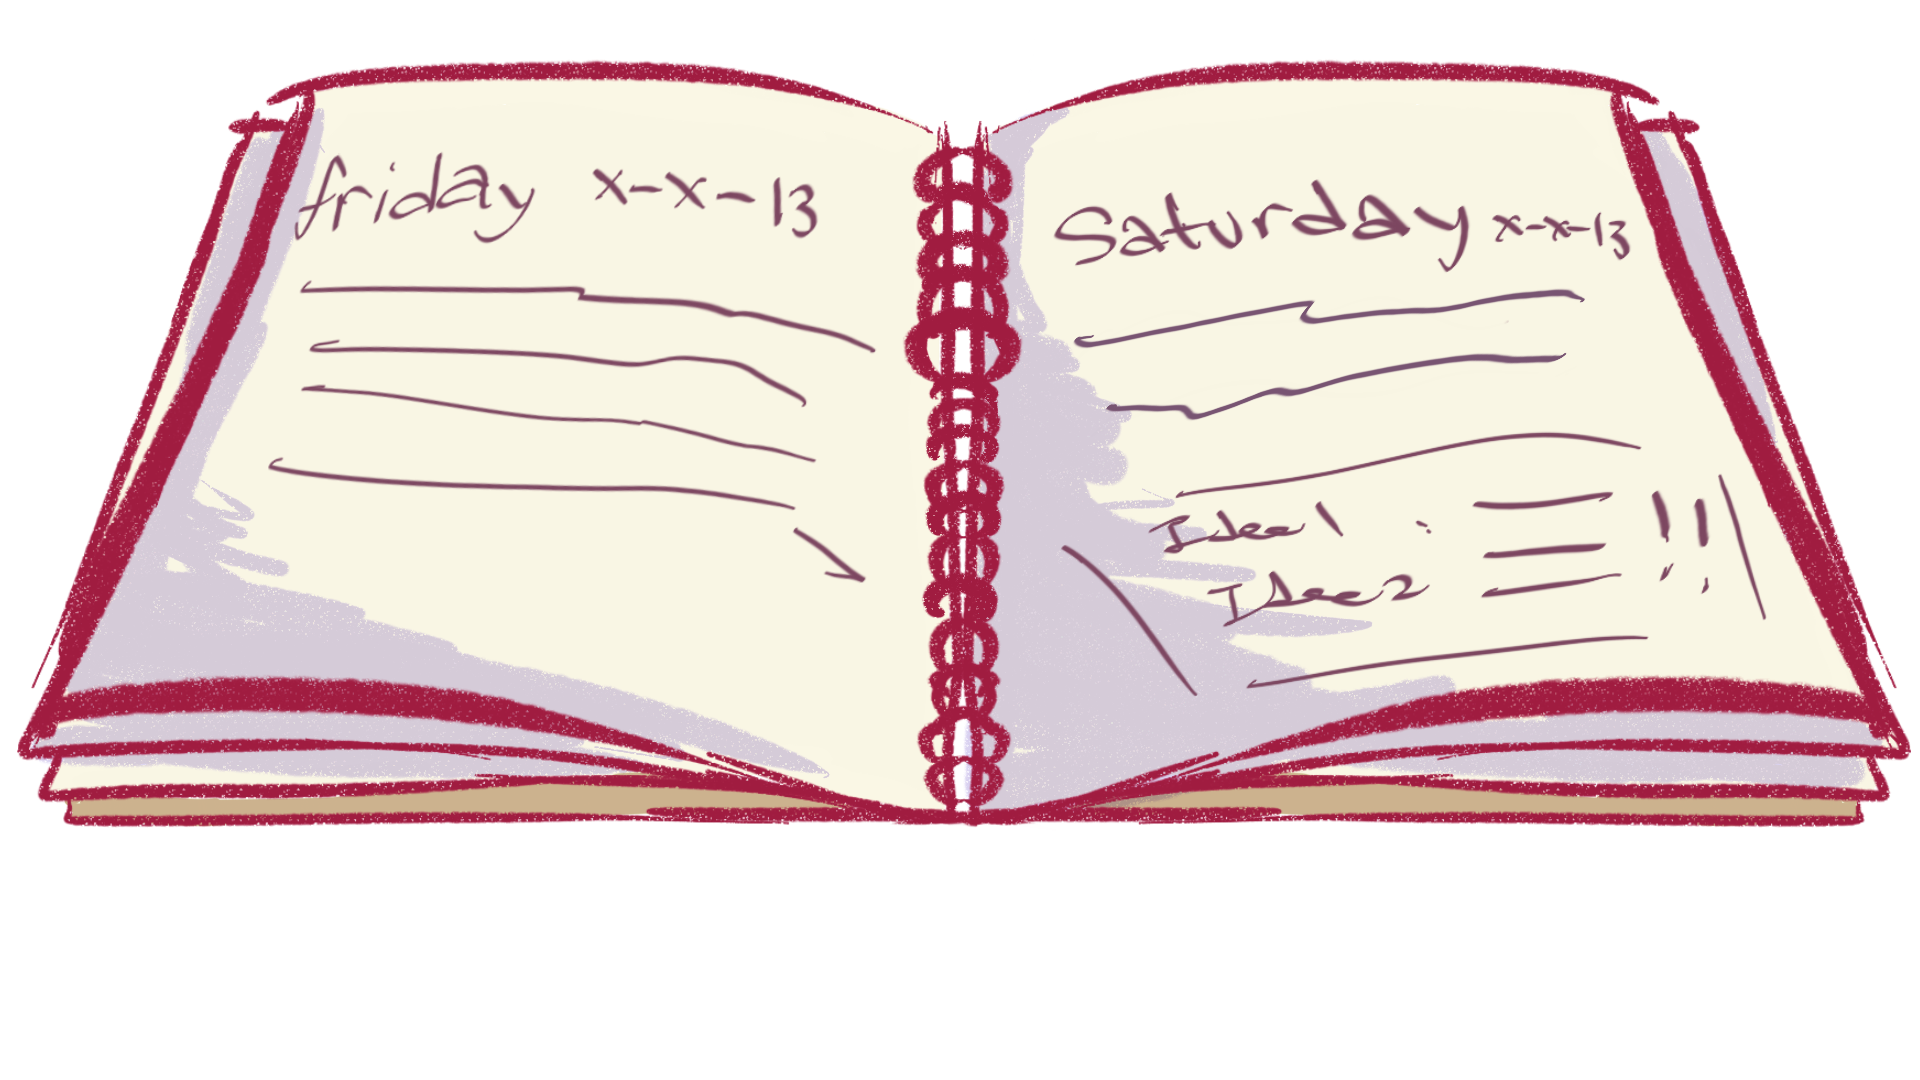 friday x-x-13
Saturday x-x-13
Idea 1 :
Idea 2
!!